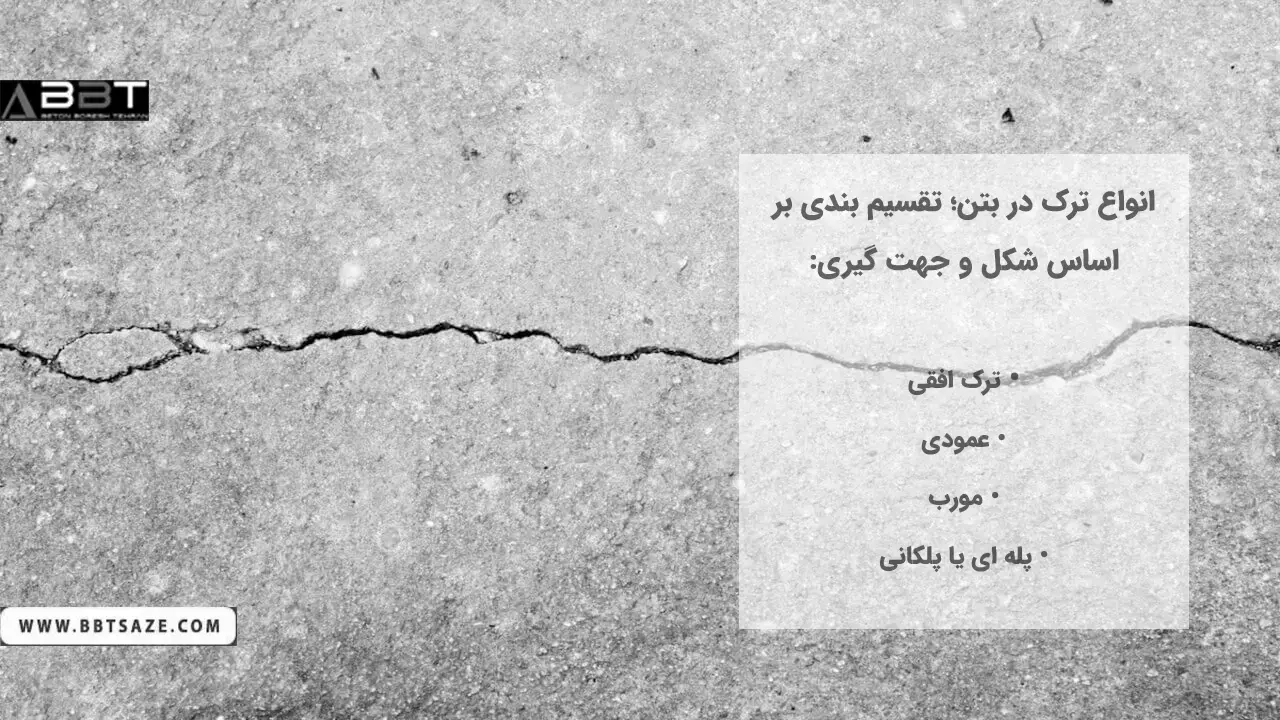 ABBT
BETON BORESH TEHRAN
انواع ترک در بتن؛ تقسیم بندی بر
اساس شکل و جهت گیری:
• ترک افقی
• عمودی
• مورب
• پله ای یا پلکانی
WWW.BBTSAZE.COM